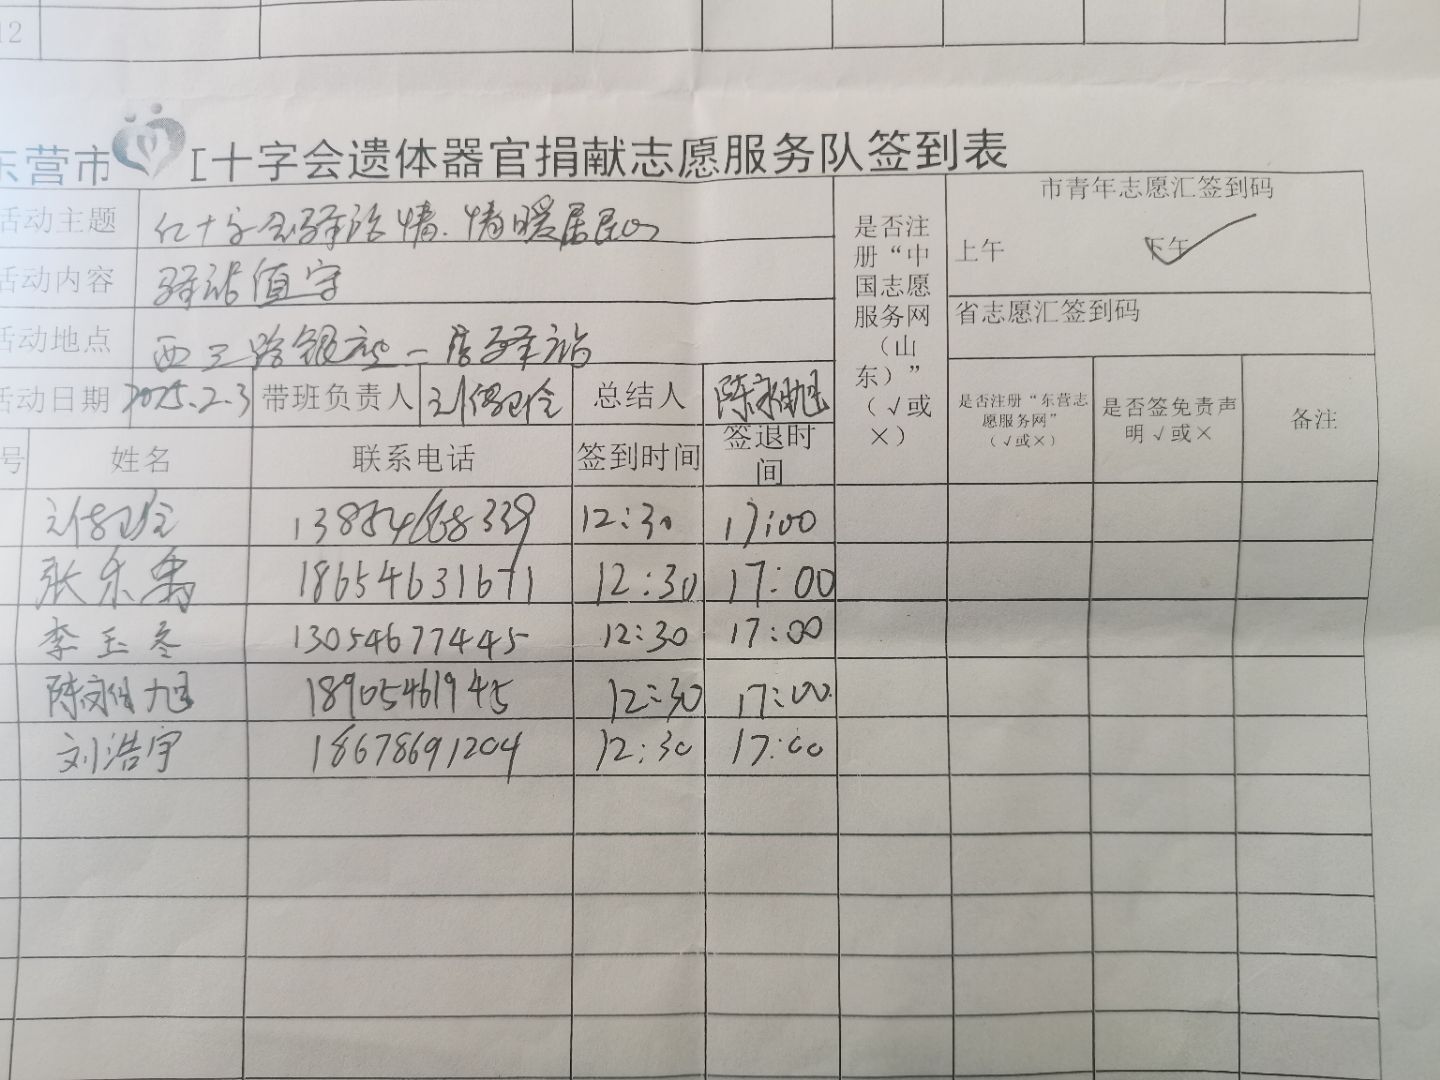 12
东营市[十字会遗体器官捐献志愿服务队签到表
活动主题 红十字会驿站情.情暖居民心
活动内容 驿站值守
活动地点 西三路银座一店驿站
活动日期 2025.2.3 带班负责人 总结人
是否注册“中国志愿服务网（山东）”（√或×）
市青年志愿汇签到码
上午 下午 ✓
省志愿汇签到码
是否注册“东营志愿服务网”（√或×） 是否签免责声明√或× 备注
号 姓名 联系电话 签到时间 签退时间
13854668339 12:30 17:00
张东禹 18654631671 12:30 17:00
李玉冬 13054677445 12:30 17:00
18905461945 12:30 17:00
刘浩宇 18678691204 12:30 17:00